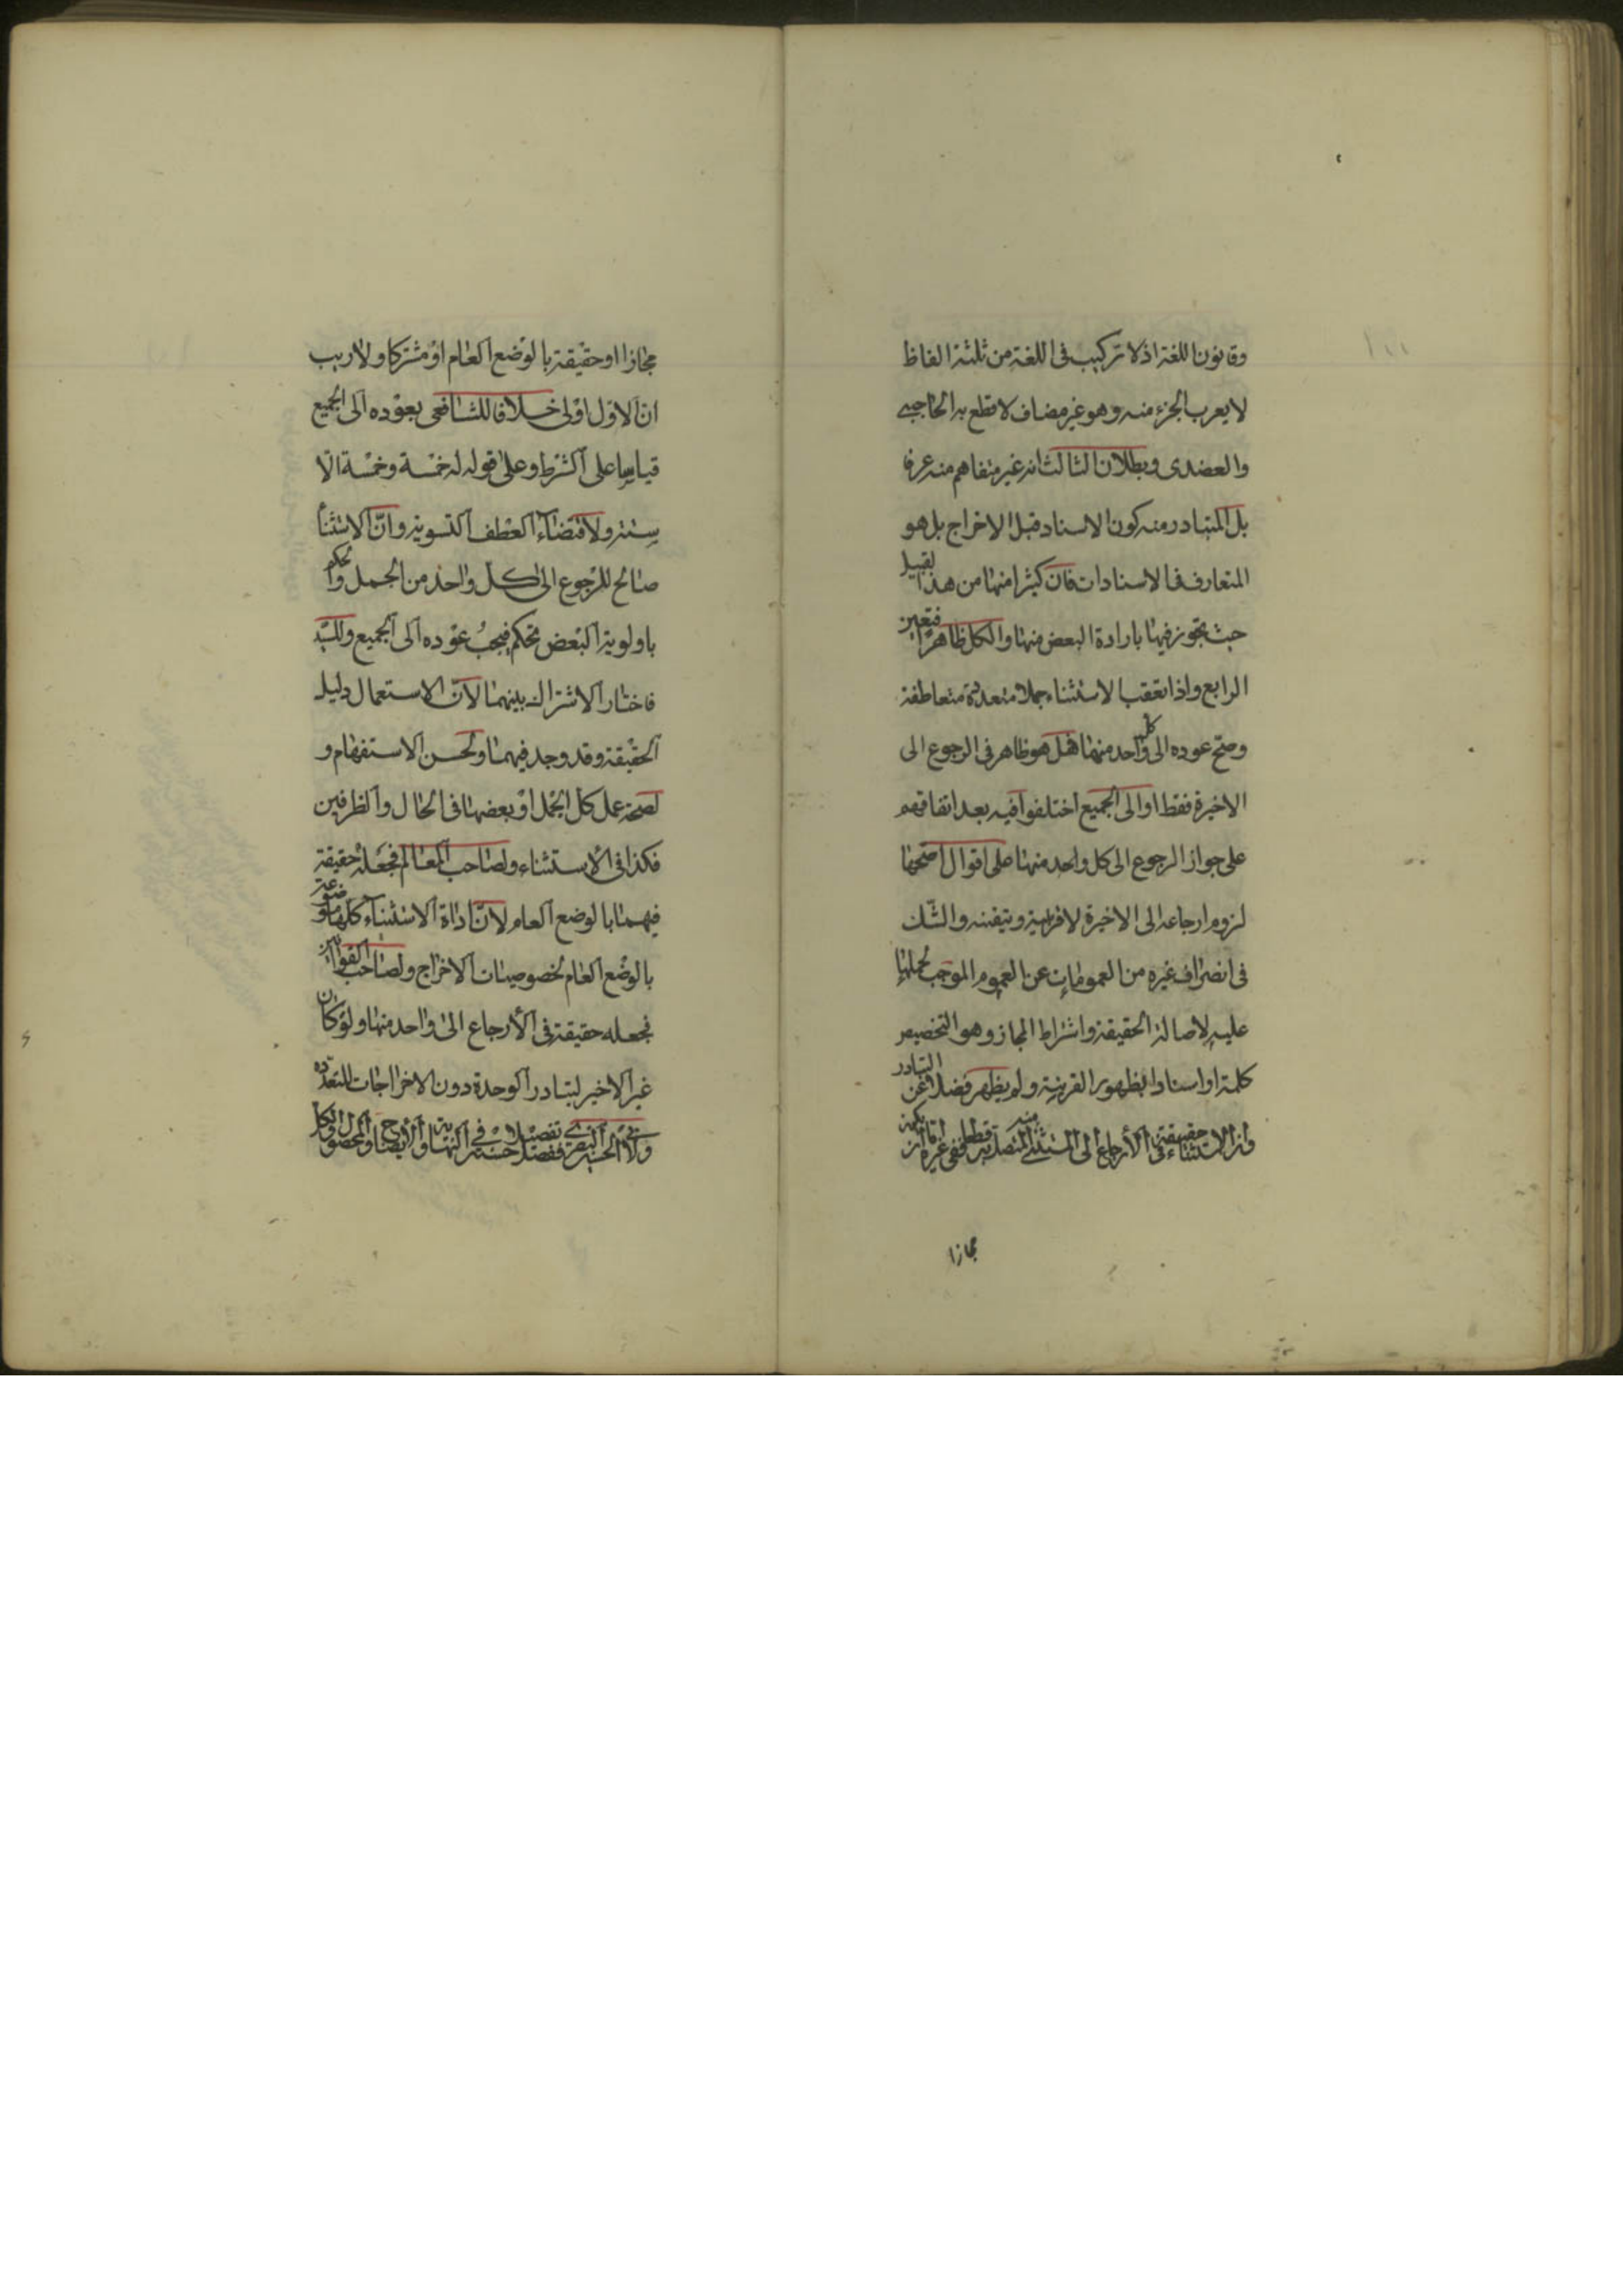 وقانون اللغة اذ لا تركيب فى اللغة من ثلثة الفاظ
لا يعرب الجزء منه وهو غير مضاف لا قطع به الحاجبى
والعضدى وبطلان الثالث انه غير متفاهم منه عرفا
بل المتبادر منه كون الاسناد قبل الاخراج بل هو
المتعارف فى الاسنادات فان كثيرا منها من هذا القبيل
حيث تجوز فيها بارادة البعض منها والكل ظاهرا فتعين
الرابع واذا تعقب الاستثناء جملا متعددة متعاطفة
وصح عوده الى كل واحد منها فهل هو ظاهر فى الرجوع الى
الاخيرة فقط او الى الجميع اختلفوا فيه بعد اتفاقهم
على جواز الرجوع الى كل واحد منها على اقوال اصحها
لزوم ارجاعه الى الاخيرة لاقربية وتيقنه والشك
فى انصراف غيره من العمومات عن العموم الموجب لحملها
عليه لاصالة الحقيقة واشتراط المجاز وهو التخصيص
كلمة او اسنادا بظهور القرينة ولم يظهر فضلا عن التبادر
وان الاستثناء حقيقة فى الأرجاع الى المستثنى منه المتصل به قطعا ففى غيره اما
مجازا
مجازا او حقيقة بالوضع العام او مشتركا ولا ريب
ان الاول اولى خلافا للشافعى بعوده الى الجميع
قياسا على الشرط وعلى قوله له خمسة وخمسة الا
ستة ولاقتضاء العطف التسوية وان الاستثناء
صالح للرجوع الى كل واحد من الجمل والحكم
باولوية البعض تحكم فيجب عوده الى الجميع وللسيد
فاختار الاشتراك بينهما لان الاستعمال دليل
الحقيقة وقد وجد فيهما ولحسن الاستفهام و
لصحة عمل كل الجمل او بعضها فى الحال والظرفين
فكذا فى الاستثناء ولصاحب المعالم فجعله حقيقة
فيهما بالوضع العام لان اداة الاستثناء كلها موضوعة
بالوضع العام لخصوصيات الاخراج ولصاحب القوانين
فجعله حقيقة فى الأرجاع الى واحد منها ولو كان
غير الاخير لتبادر الوحدة دون الاخراجات المتعددة
ولأبى الحسين البصرى تفصيل فى النهاية